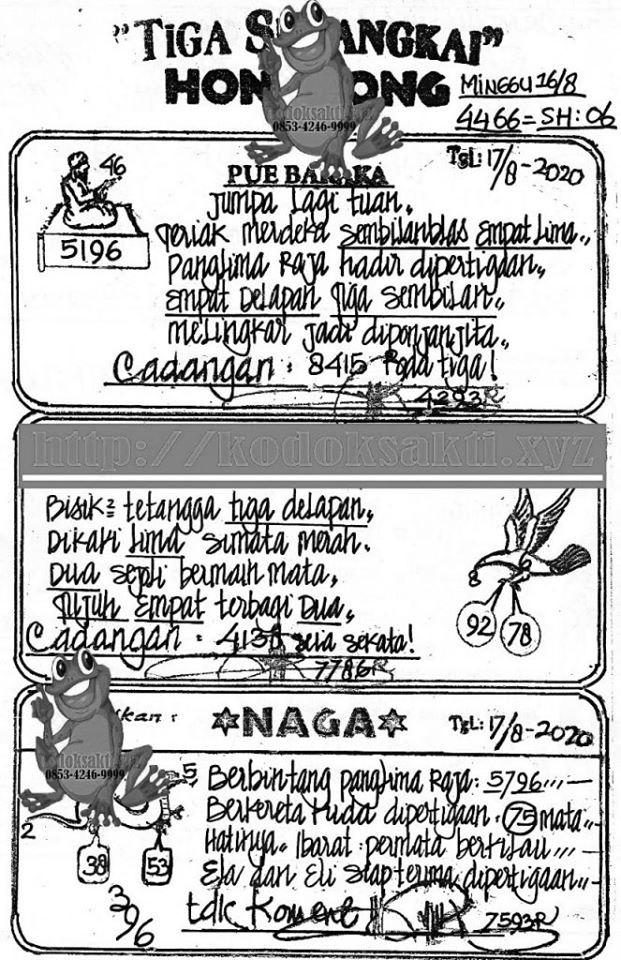 "TIGA S ANGKAI"
HON ONG
MINGGU 16/8
4466 = SH: 06
kodoksakti.xyz
0853-4246-9999
TgL: 17/8-2020
46
5196
PUE BA KA
Jumpa Lagi tuan,,
Teriak merdeka sembilanblas empat lima,,
Panglima Raja hadir dipertigaan,,
empat Delapan tiga sembilan,,
melingkar jadi
Cadangan : 8415 Roda tiga!
4293R
http://kodoksakti.xyz
Bisik2 tetangga tiga delapan,,
Dikaki lima sumata merah.
Dua sejoli bermain mata,,
Tujuh empat terbagi Dua,,
8
92
78
Cadangan : 4138 seia sekata!
7786R
kan :
NAGA
TgL: 17/8-2020
kodoksakti
0853-4246-9999
5
2
38
53
396
Berbintang panglima Raja: 5796
Berkereta kuda dipertigaan. 75 mata
Hatinya. Ibarat permata berkilau
Ela dan Eli siap terima dipertigaan
tdk Koment
7593R